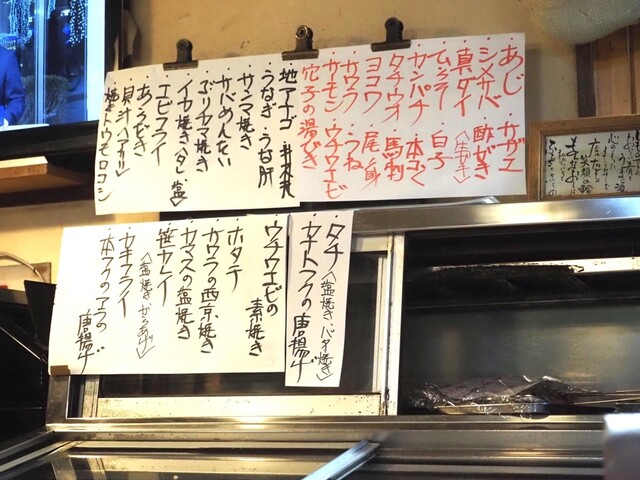 ・あじ ・サザエ
・シメサバ ・酢がき
・真ダイ 〈生ガキ〉
・カンパチ ・本ふぐ
・タチウオ ・馬刺
・ヨコワ ・尾の身
・サワラ ・うね
・サーモン ・ウチワエビ
・穴子の湯びき
・地アナゴ
・うなぎ・うな肝
・サンマ焼き
・サバめんたい
・ぶりカマ焼き
・イカ焼き〈タレ・塩〉
・エビフライ
・あつあげ
・貝汁〈アサリ〉
・焼きトウモロコシ
・タチ〈塩焼き バター焼き〉
・カナトフグの唐揚げ
・ウチワエビの素焼き
・ホタテ
・サワラの西京焼き
・カマスの塩焼き
・笹カレイ
〈塩焼き からあげ〉
・カキフライ
・本フグのアラの唐揚げ